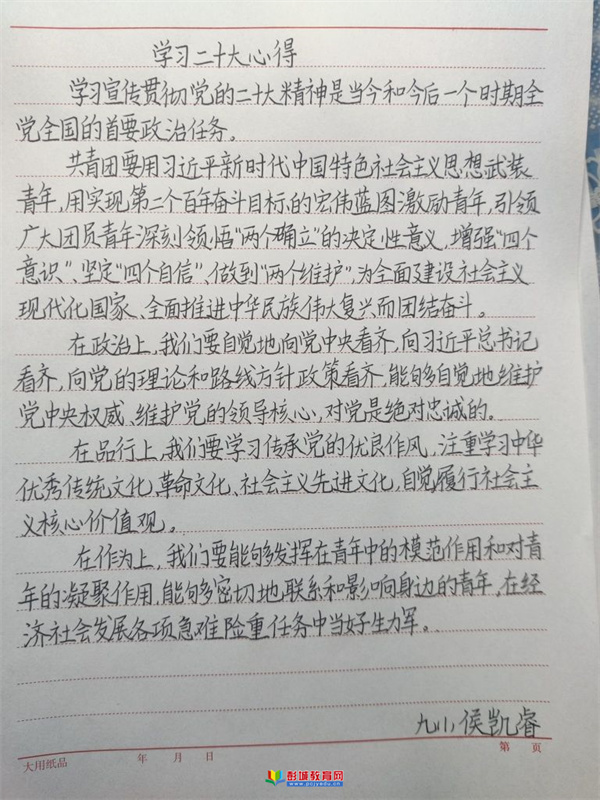 学习二十大心得
学习宣传贯彻党的二十大精神是当今和今后一个时期全
党全国的首要政治任务。
共青团要用习近平新时代中国特色社会主义思想武装
青年,用实现第二个百年奋斗目标的宏伟蓝图激励青年,引领
广大团员青年深刻领悟“两个确立”的决定性意义,增强“四个
意识”、坚定“四个自信”、做到“两个维护”,为全面建设社会主义
现代化国家、全面推进中华民族伟大复兴而团结奋斗。
在政治上,我们要自觉地向党中央看齐,向习近平总书记
看齐,向党的理论和路线方针政策看齐,能够自觉地维护
党中央权威、维护党的领导核心,对党是绝对忠诚的。
在品行上,我们要学习传承党的优良作风,注重学习中华
优秀传统文化,革命文化、社会主义先进文化,自觉履行社会主
义核心价值观。
在作为上,我们要能够发挥在青年中的模范作用和对青
年的凝聚作用,能够密切地联系和影响身边的青年,在经
济社会发展各项急难险重任务中当好生力军。
九小侯凯睿
大用纸品 年 月 日 第 页
彭城教育网
www.pcjyedu.cn